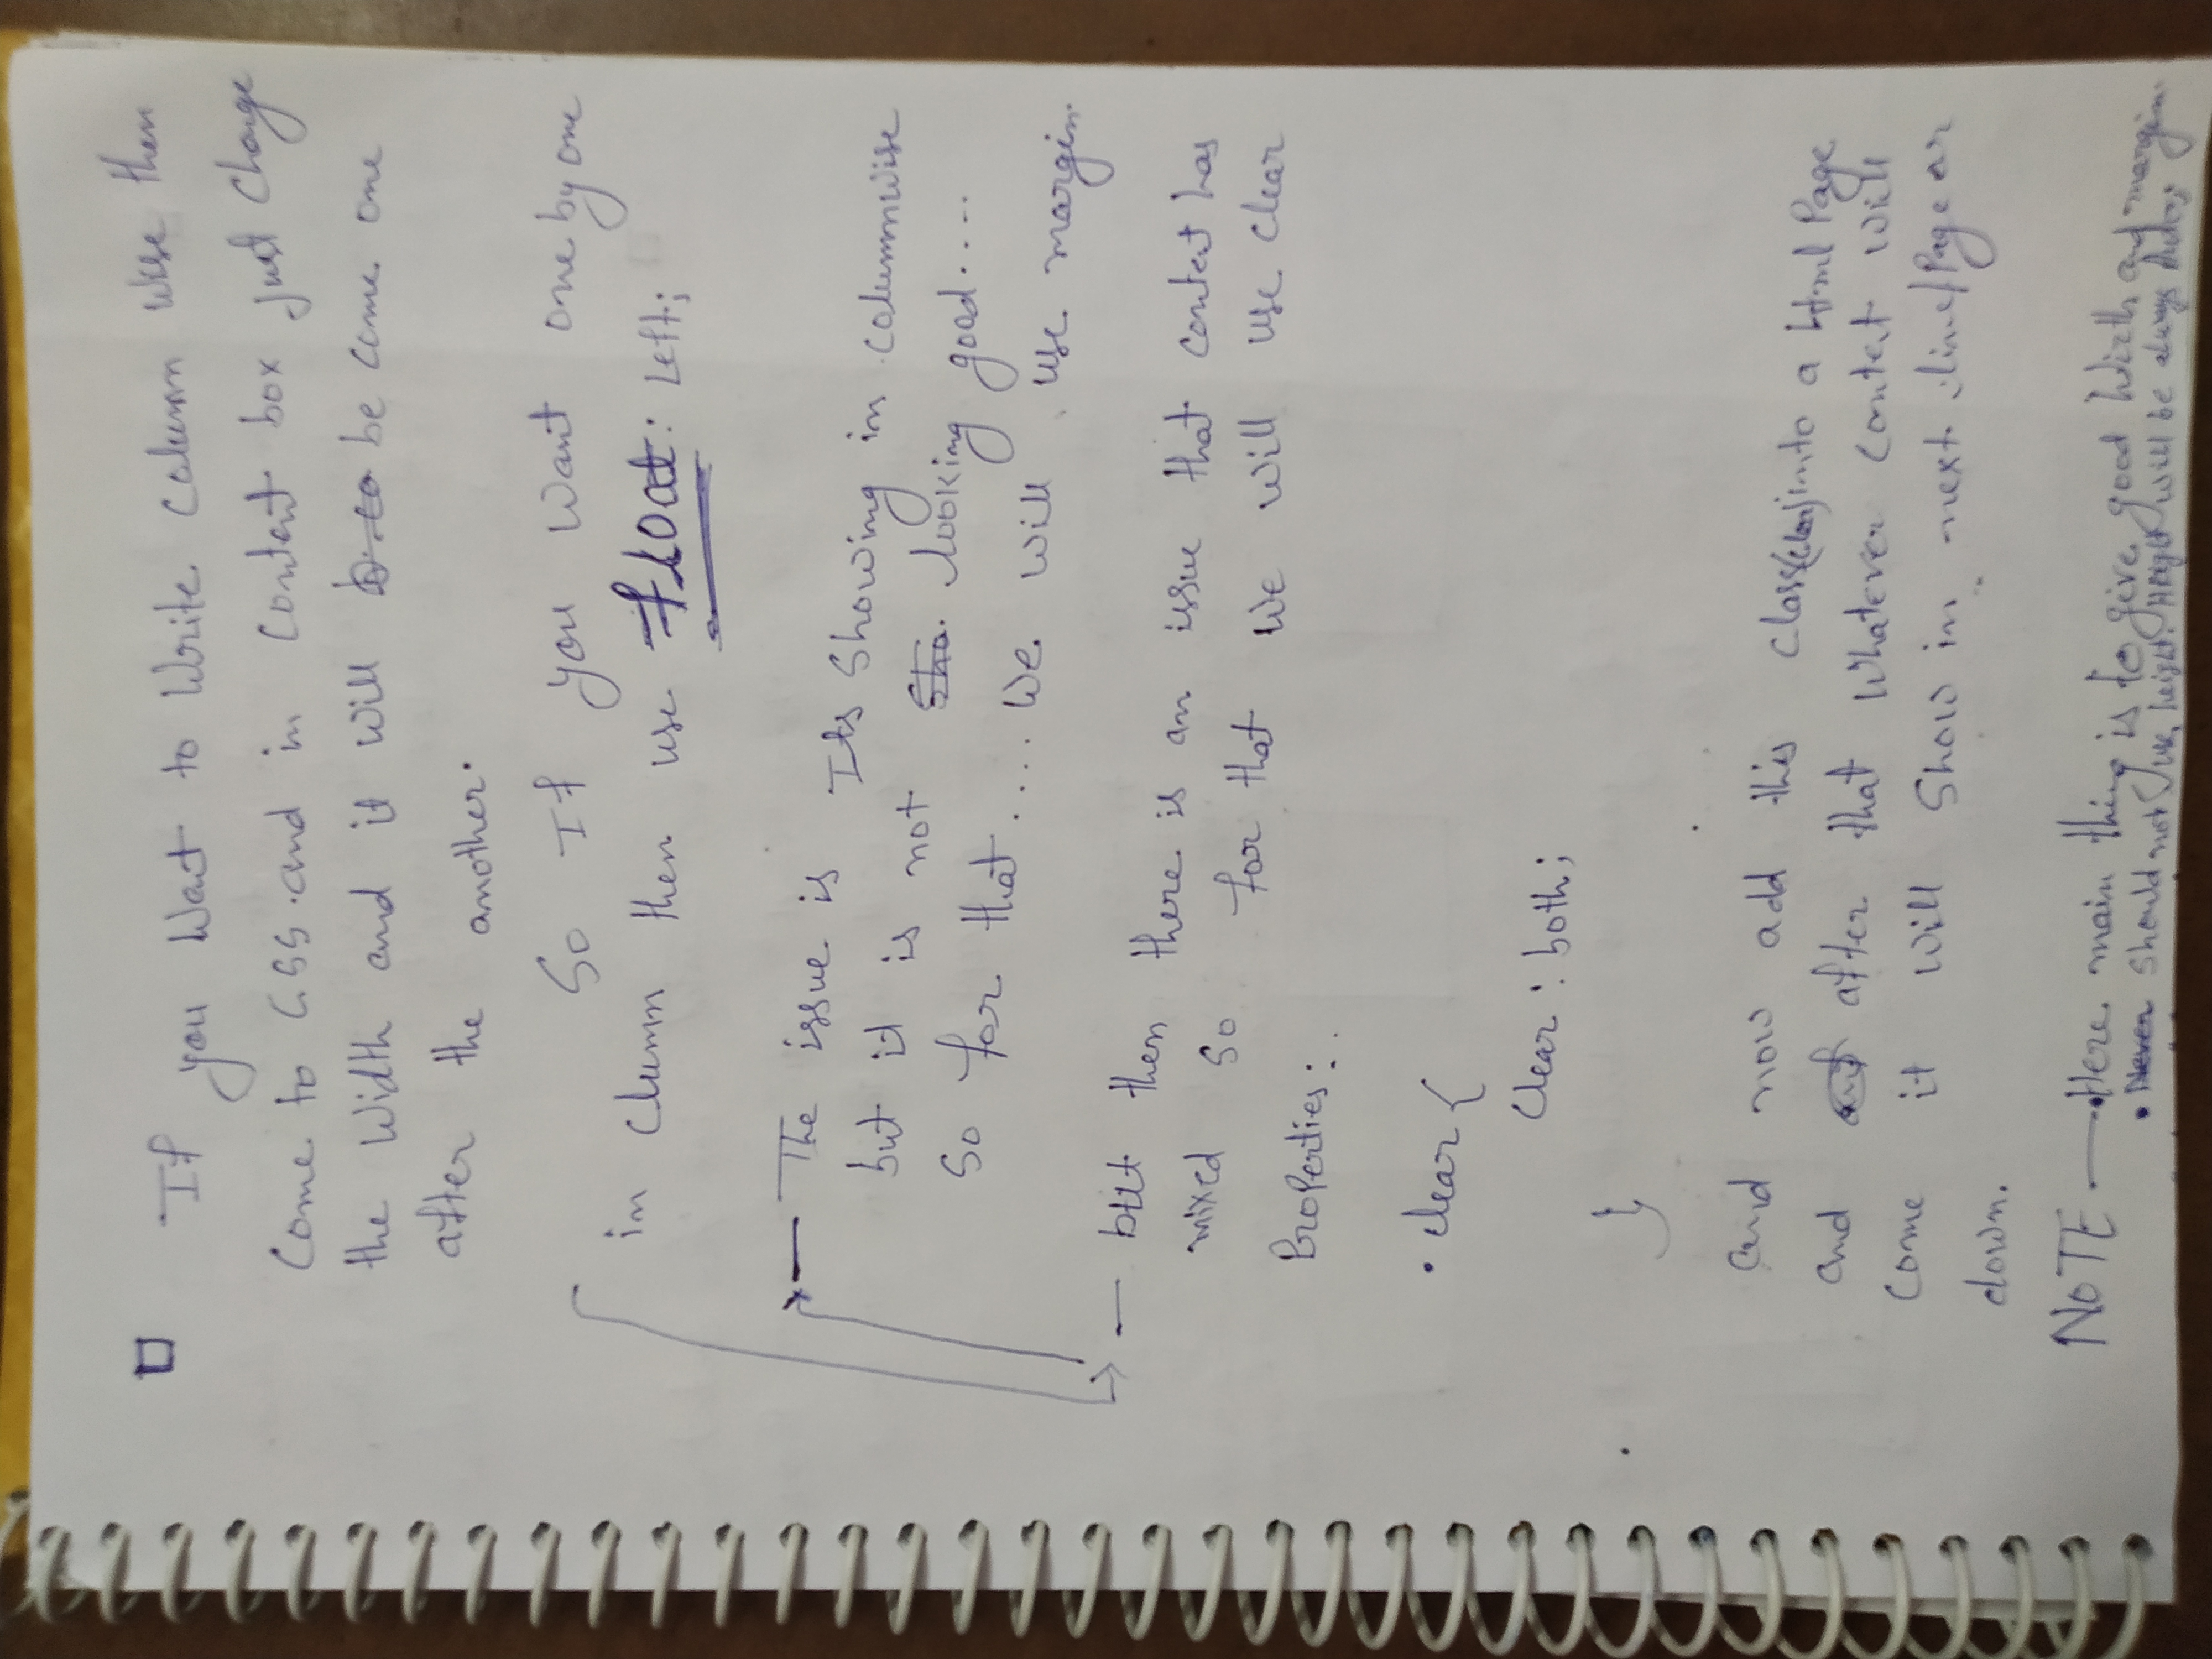 If you Wat to Write Column wise then
Come to Css and in Contet box just Change
the Width and it will be come one
after the another.
So If you want one by one
in Clumn then use float: Left;
— The issue is Its Showing in columnwise
but it is not looking good....
So for that .... We will use margin.
— but then there is an issue that contet has
mixed so for that we will use clear
Properties:
.clear {
Clear : both;
}
and now add this class(clear) into a Html Page
and after that Whatever Contet will
Come it will Show in next line/Page or
down.
NOTE — Here main thing is to give good Width and margin.
• Never should not use height. Height will be always